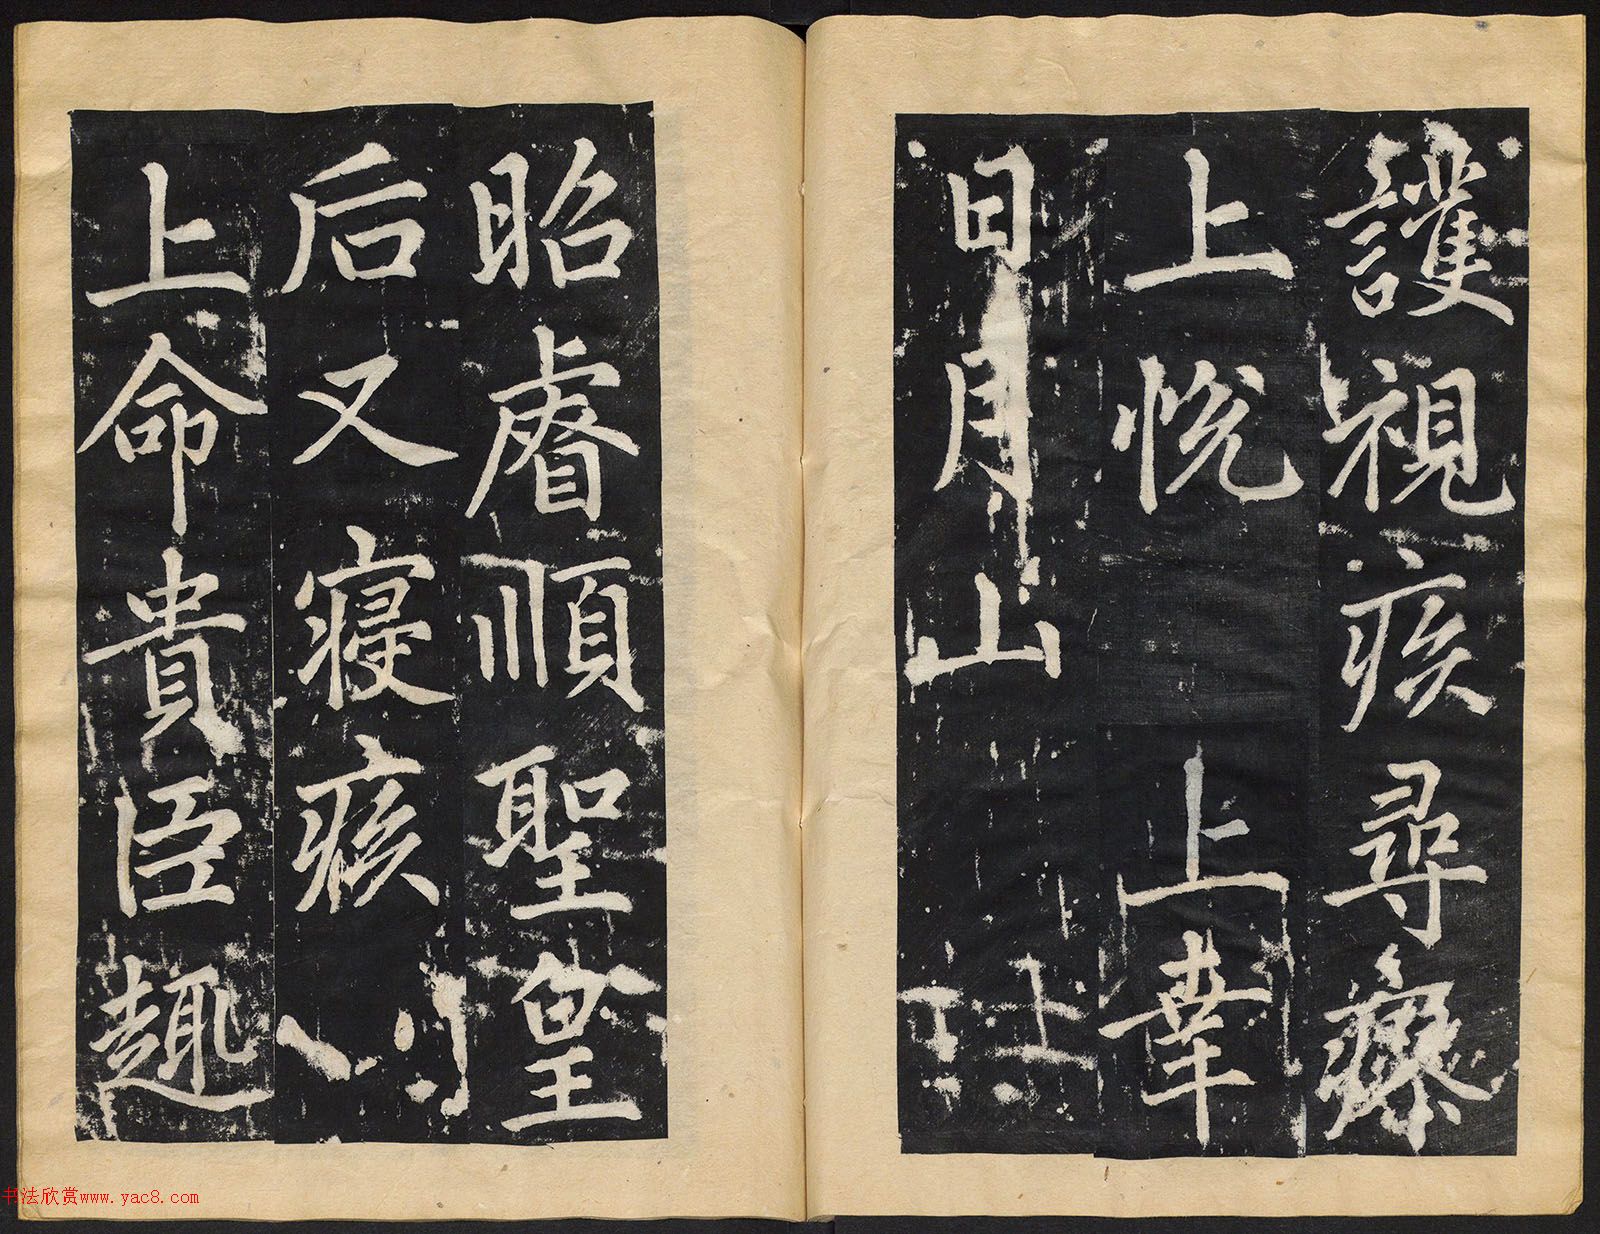 護視疾尋瘳
上悅 上幸
日月山
昭睿順聖皇
后又寢疾
上命貴臣趣
书法欣赏www.yac8.com